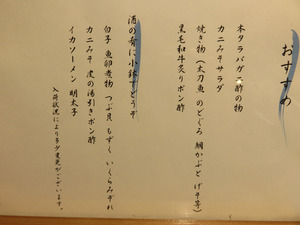 おすすめ
本タラバガニ酢の物
カニみそサラダ
焼き物（太刀魚 のどぐろ 鯛かぶと げそ等）
黒毛和牛炙りポン酢
酒の肴に小鉢でどうぞ
白子 魚卵煮物 つぶ貝 もずく いくらみぞれ
カニみそ 皮の湯引きポン酢
イカソーメン 明太子
入荷状況により多少変更がございます。